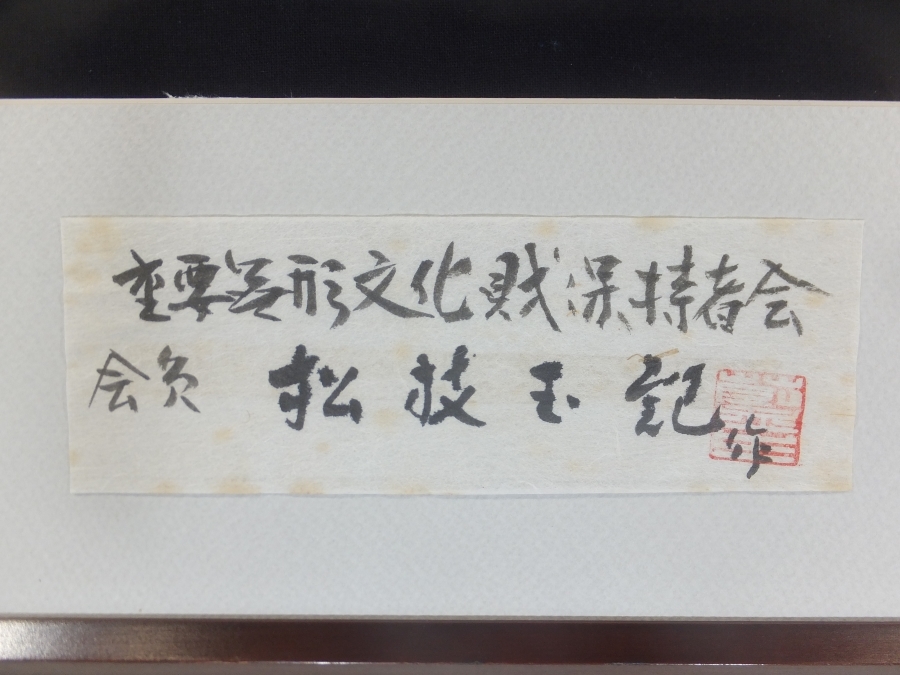 重要無形文化財保持者会
会員 松枝玉記作